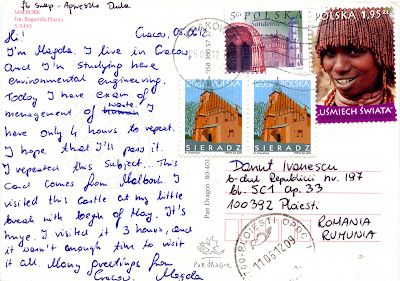 fb swap - Agnieszka Duda
MALBORK
Fot. Bogumiła Piazza
S-5495
Cracow, 05.06.12
Hi!
I'm Magda. I live in Cracow,
And I'm studying here
environmental engineering.
Today I have exam of
waste!
menagement of
have only 4 hours to repeat.
I hope that I'll pass it.
I repeated this subject... This
Card comes from Malbork. I
visited this Castle at my little
break with begin of May. It's
huge. I visited it 3 hours, and
it wasn't enough time to visit
it all. Many greetings from
Cracow. Magda
5zł POLSKA
Sandomierz
POLSKA 1,95 zł
UŚMIECH ŚWIATA
POLSKA
SIERADZ
POLSKA
SIERADZ
Pan Dragon
Pan dragon
Danut Ivanescu
b-dul Republicii nr. 197
bl. 5C1 ap. 33
100392 Ploiesti
ROMANIA
RUMUNIA
PLOIESTI